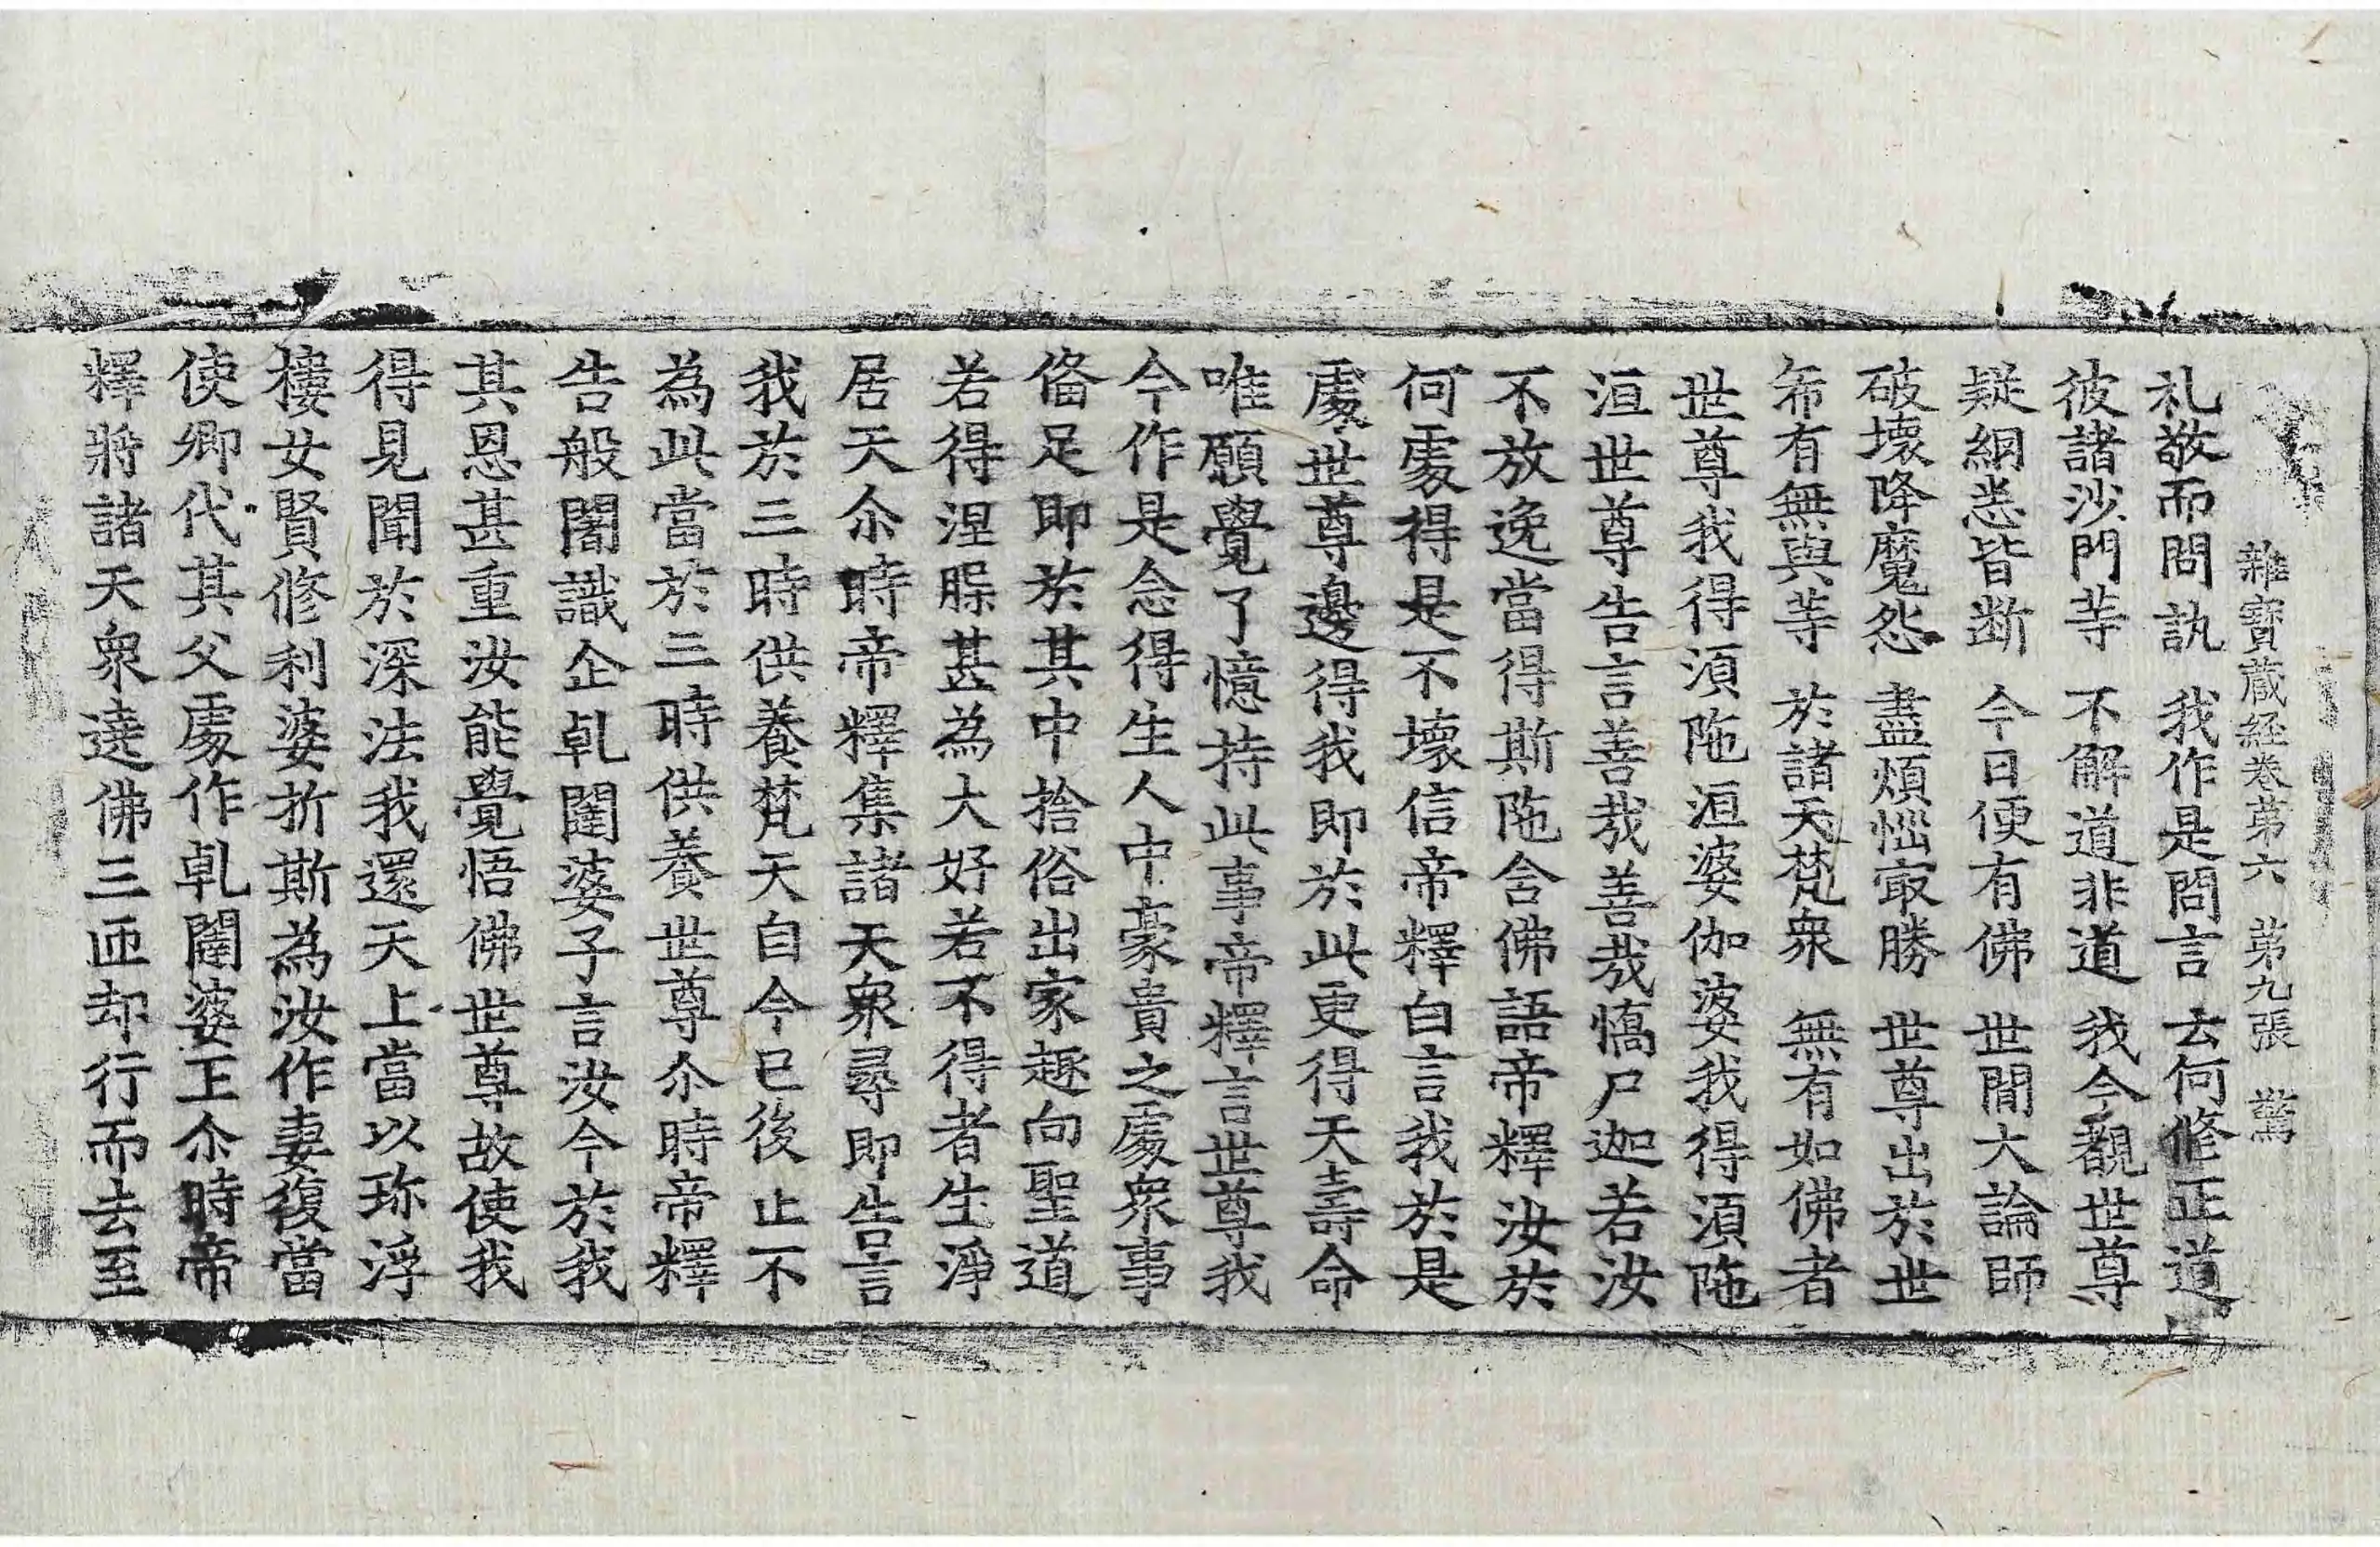 雜寶藏經卷第六　第九張　驚
礼敬而問訊　我作是問言　去何修正道
彼諸沙門等　不解道非道　我今覩世尊
疑網悉皆断　今日便有佛　世閒大論師
破壞降魔怨　盡煩惱㝡勝　世尊出於世
希有無與等　於諸天梵衆　無有如佛者
世尊我得須陁洹婆伽婆我得須陁
洹世尊告言善哉善哉憍尸迦若汝
不放逸當得斯陁含佛語帝釋汝於
何處得是不壞信帝釋白言我於是
處世尊邊得我即於此更得天壽命
唯願覺了憶持此事帝釋言世尊我
今作是念得生人中豪貴之處衆事
俻足即於其中捨俗出家趣向聖道
若得涅槃甚為大好若不得者生淨
居天尒時帝釋集諸天衆尋即告言
我於三時供養梵天自今已後止不
為此當於三時供養世尊尒時帝釋
告般闍識企乹闥婆子言汝今於我
其恩甚重汝能覺悟佛世尊故使我
得見聞於深法我還天上當以珎浮
樓女賢修利婆折斯為汝作妻復當
使卿代其父處作乹闥婆王尒時帝
釋將諸天衆遶佛三迊却行而去至